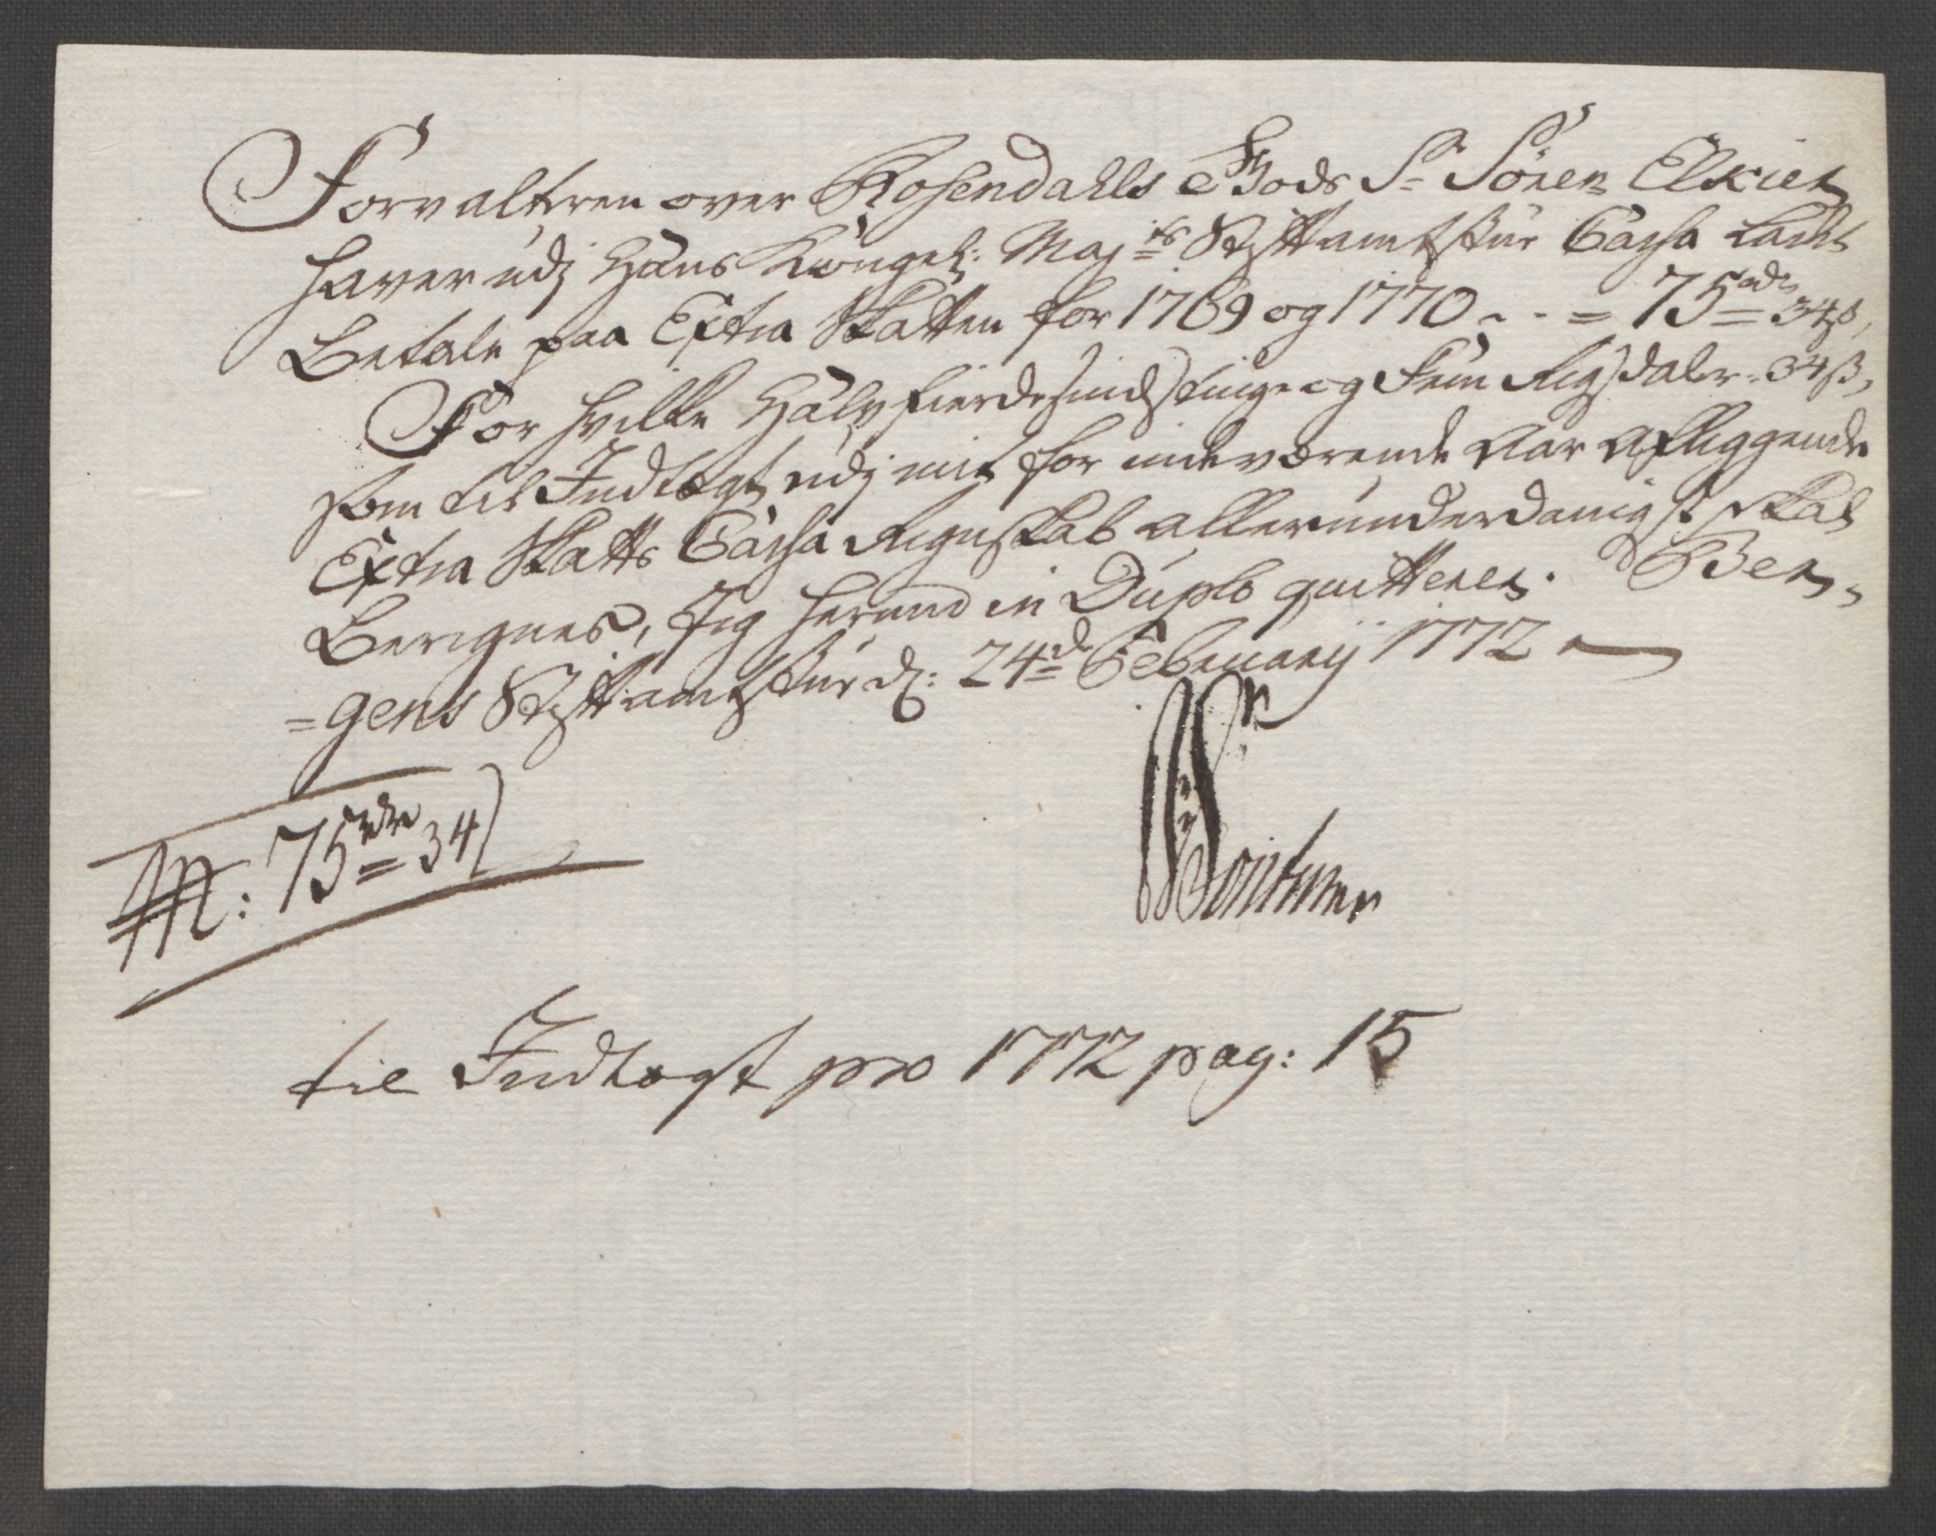 Forvalteren over Rosendahls Gods Sr Sören Elkier
haver udj Hans Kongel: Majts Stiftamtstue Cassa ladet
Betale paa Extra Skatten for 1769 og 1770 - - = 75 rdr = 34 ß,
For hvilke Halvfierdesindstiuge og Fem Rigsdaler 34 ß,
som til Indtægt udj mit for indeværende Aar aflæggende
Extra Skatts Cassa Regnskab allerunderdanigst skal
Beregnes, Jeg herved in Duplo quitterer. Ber-
=gens Stiftamtstue d: 24de Februarij 1772
75 rdr = 34
til Indtægt pro 1772 pag: 15